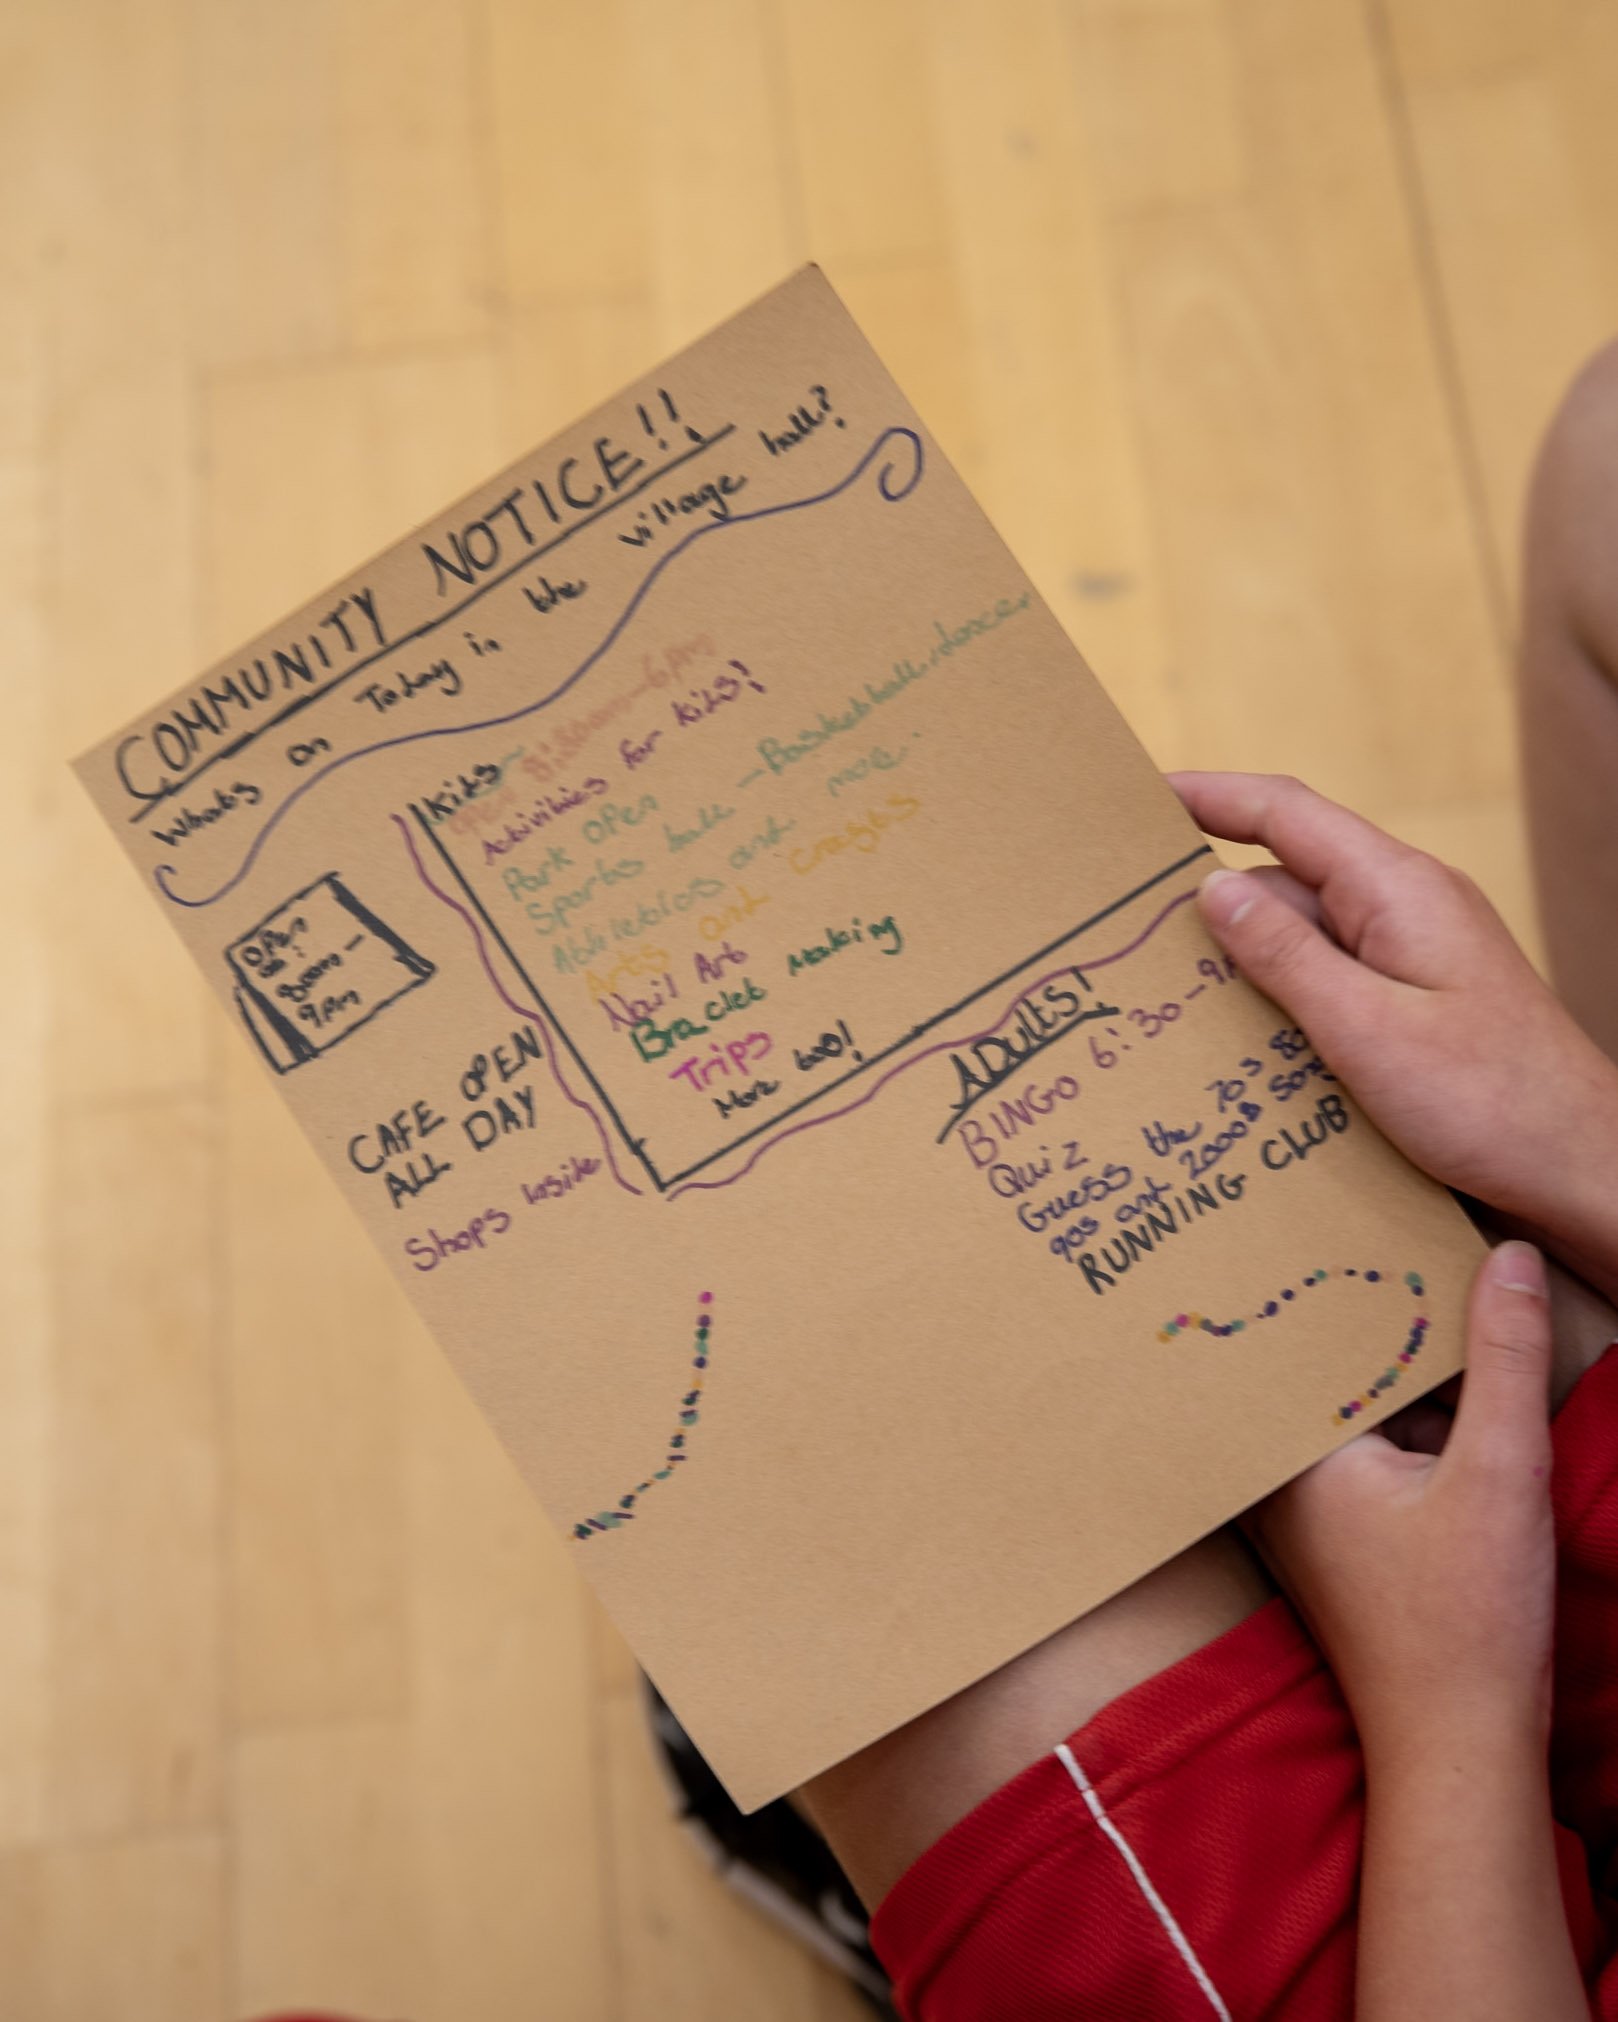 COMMUNITY NOTICE!!
Whats on Today in the village hall?
Kids-
open 8:30am-6pm
Activities for kids!
Park open
Sports hall - Basketball, dance,
Athletics and more.
Arts and crafts
Nail Art
Braclet Making
Trips
More too!
Open
at:
8am-
9pm
CAFE OPEN
ALL DAY
Shops Inside
ADULTS!
BINGO 6:30-9
Quiz
Guess the 70s 80s
90s and 2000s song
RUNNING CLUB